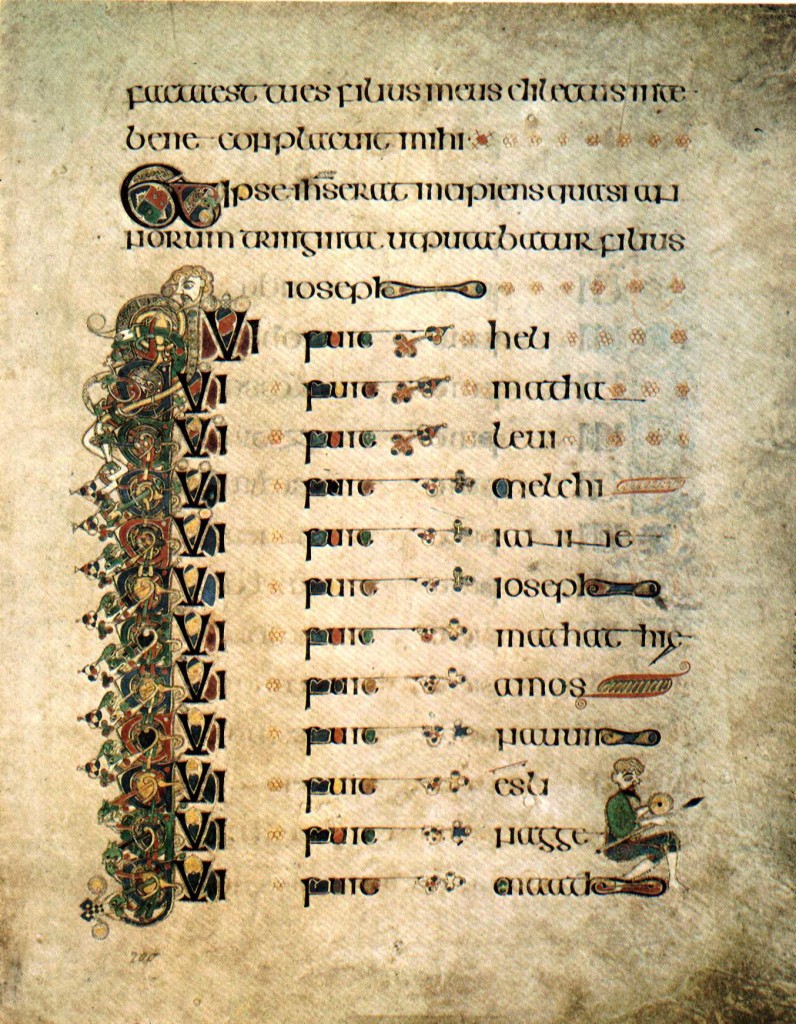 facta est tu es filius meus dilectus in te
bene conplacuit mihi
Et ipse ihs erat incipiens quasi an
norum tringinta ut putabatur filius
ioseph
QUI fuit heli
QUI fuit matha
QUI fuit leui
QUI fuit melchi
QUI fuit iannae
QUI fuit ioseph
QUI fuit mathathie
QUI fuit amos
QUI fuit nauum
QUI fuit esli
QUI fuit nagge
QUI fuit maath
200